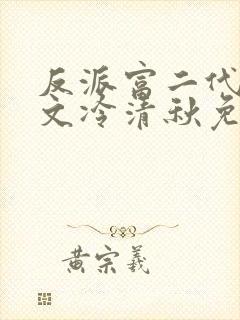 反派富二代
文冷清秋免
黄宗羲